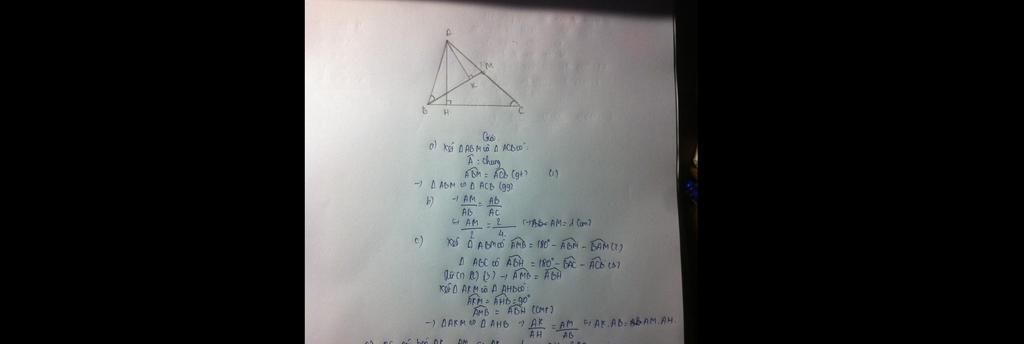 A
M
K
B H C
Giải
a) Xét Δ ABM và Δ ACB có:
Â: chung
ABM = ACB (gt) (1)
→ Δ ABM ∽ Δ ACB (gg)
b) → AM/AB = AB/AC
⇔ AM/2 = 2/4 ⇔ AM = 1 (cm)
c) Xét Δ ABM có AMB = 180° - ABM - BAM (2)
Δ ABC có ABH = 180° - BAC - ACB (3)
Từ (1) (2) (3) → AMB = ABH
Xét Δ AKM và Δ AHB có:
AKM = AHB = 90°
AMB = ABH (cmt)
→ Δ AKM ∽ Δ AHB → AK/AH = AM/AB ⇔ AK.AB = AM.AH.